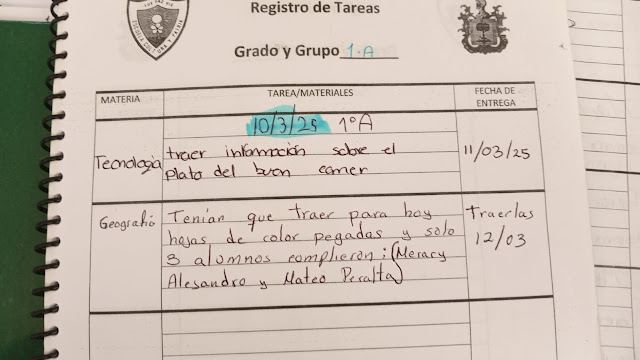 Registro de Tareas
Grado y Grupo 1.A
MATERIA
TAREA/MATERIALES
FECHA DE
ENTREGA
10/3/25 1°A
Tecnología
traer información sobre el
plato del buen comer
11/03/25
Geografía
Tenían que traer para hoy
hojas de color pegadas y solo
3 alumnos complieron: (Meracy
Alesandro y Mateo Peralta)
traerlas
12/03